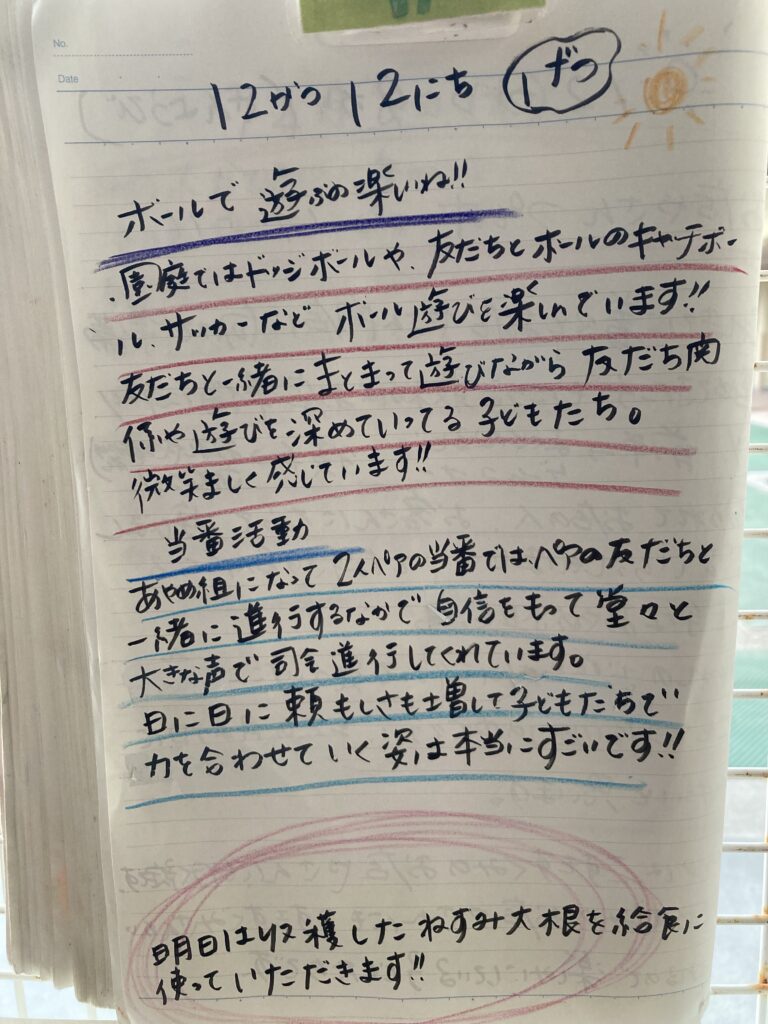 No.
Date
12がつ 12にち げつ
ボールで 遊ぶの楽しいね!!
・園庭ではドッジボールや、友だちとボールのキャッチボー
ル、サッカーなど ボール遊びを楽しんでいます!!
友だちと一緒にまとまって遊びながら 友だち関
係や遊びを深めていってる子どもたち。
微笑ましく感じています!!
当番活動
あやめ組になって 2人ペアの当番では、ペアの友だちと
一緒に進行するなかで自信をもって堂々と
大きな声で司会進行してくれています。
日に日に頼もしさも増して子どもたちで
力を合わせていく姿は本当にすごいです!!
明日は収穫したねずみ大根を給食に
使っていただきます!!